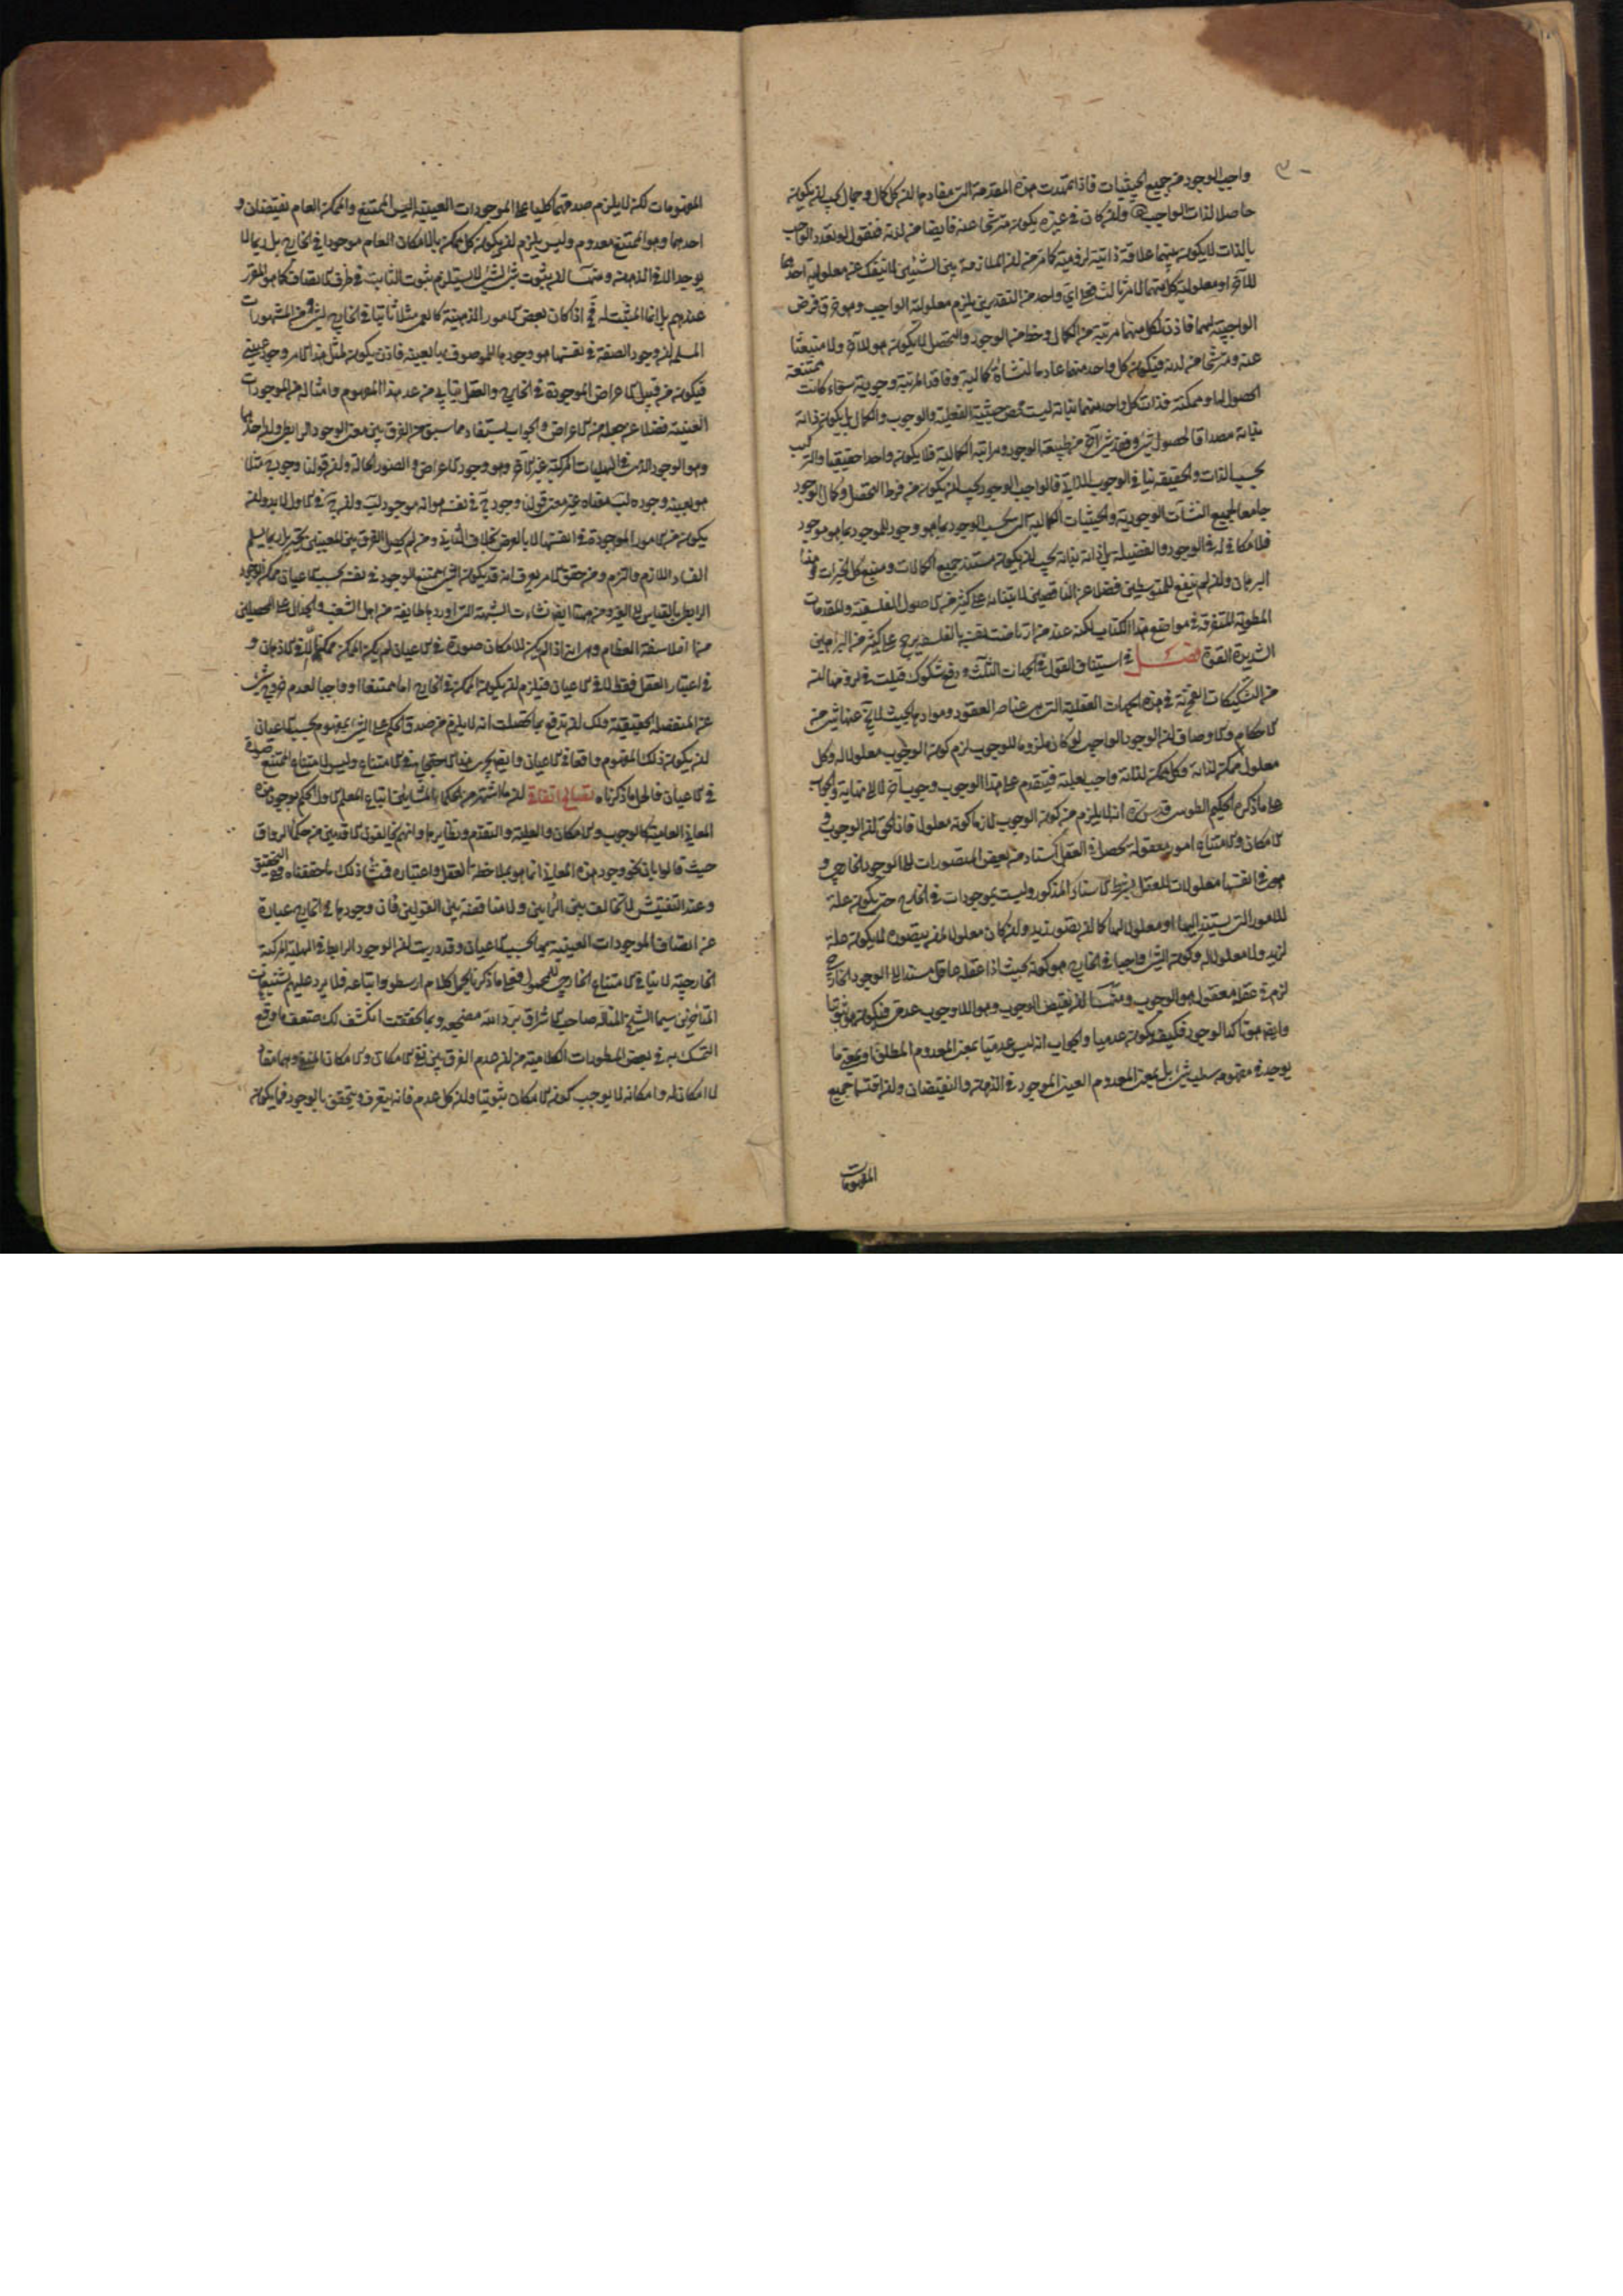 واجب الوجود من جميع الحيثيات فاذا تمهدت هذه المقدمة التي مفادها ان كل كمال وجمال يجب ان يكون
حاصلا لذات الواجب وان كان في غيره يكون مترشحا عنه فايضا من لدنه فنقول لو تعدد الواجب
بالذات لا يكون بينهما علاقة ذاتية لزومية كما مر من ان الملازمة بين الشيئين لا تنفك عن معلولية احدهما
للآخر او معلولية كل منهما لامر ثالث فعلى اي واحد من التقديرين يلزم معلولية الواجب وهو خرق فرض
الواجبية لهما فاذن لكل منهما مرتبة من الكمال وحظ من الوجود والتحصل لا يكون هو للآخر ولا منبعثا
عنه ومترشحا من لدنه فيكون كل واحد منهما عادما لنشأة كمالية وفاقدا لمرتبة وجودية سواء كانت ممتنعة
الحصول لها او ممكنة فذات كل واحد منهما بذاته ليست محض حيثية الفعلية والوجوب والكمال بل يكون ذاته
بذاته مصداقا لحصول شيء وفقد شيء آخر من طبيعة الوجود ومراتبه الكمالية فلا يكون واحدا حقيقيا والتركيب
بحسب الذات والحقيقة ينافي الوجوب الذاتي فالواجب الوجود يجب ان يكون من فرط التحصل وكمال الوجود
جامعا لجميع النشآت الوجودية والحيثيات الكمالية التي بحسب الوجود بما هو وجود للموجود بما هو موجود
فلا مكافئ له في الوجود والفضيلة بل ذاته بذاته يجب ان يكون مستند جميع الكمالات ومنبع كل الخيرات وهذا
البرهان وان لم ينفع للمتوسطين فضلا عن الناقصين لابتنائه على كثير من الاصول الفلسفية والمقدمات
المطوية المتفرقة في مواضع هذا الكتاب لكنه عند من ارتاضت نفسه بالفلسفة يرجح على كثير من البراهين
الشديدة القوة فصل في استيناف القول في الجهات الثلث ودفع شكوك قيلت في لزومها انه
من التشكيكات الفخرية في هذه الجهات العقلية التي هي عناصر العقود وموادها بحيث لا يخ عنها شيء من
الاحكام والاوصاف ان الوجود الواجبي لو كان ملزوما للوجوب لزم كون الوجوب معلولا له وكل
معلول ممكن لذاته وكل ممكن لذاته واجب بعلته فيتقدم على هذا الوجوب وجوب آخر لا الى نهاية والجواب
على ما ذكره الحكيم الطوسي قدس سره انه لا يلزم من كون الوجوب لازما كونه معلولا فان الحق ان الوجوب و
الامكان والامتناع امور معقولة تحصل في العقل من استناد بعض المتصورات الى الوجود الخارجي و
هي في انفسها معلولات للعقل بشرط الاستناد المذكور وليست بموجودات في الخارج حتى يكون علة
للامور التي يستند اليها او معلولا لها كما ان تصور زيد وان كان معلولا لمن يتصوره لا يكون علة
لزيد ولا معلولا له وكون الشيء واجبا في الخارج هو كونه بحيث اذا عقله عاقل مستندا الى الوجود الخارجي
لزم في عقله معقول هو الوجوب ومنها ان نقيض الوجوب وهو اللاوجوب عدمي فيكون هو ثبوتيا
وايضا هو تاكد الوجود فكيف يكون عدميا والجواب انه ليس عدميا بمعنى المعدوم المطلق او بمعنى ما
يوجد في مفهومه سلب شيء بل بمعنى المعدوم العيني الموجود في الذهن والنقيضان وان اقتسما جميع
المفهومات
المفهومات لكن لا يلزم صدقهما كليا على الموجودات العينية اليس الممتنع والممكن العام نقيضان و
احدهما وهو الممتنع معدوم وليس يلزم ان يكون كل ممكن بالامكان العام موجودا في الخارج بل ربما لا
يوجد الا في الذهن ومنها ان ثبوت شيء لشيء لا يستلزم ثبوت الثابت في ظرف الاتصاف كما هو المقرر
عندهم بل انما المثبت له فح اذا كان بعض الامور الذهنية كالعمى مثلا ثابتا في الخارج لشيء ومن المشهورات
المسلمة ان وجود الصفة في نفسها هو وجودها للموصوف بالعينه فاذن يكون لمثل هذا الامر وجود عيني
فيكون من قبيل الاعراض الموجودة في الخارج والعقل يتأبى من عد هذا المفهوم وامثاله من الموجودات
العينية فضلا عن جعله من الاعراض والجواب يستفاد مما سبق من الفرق بين معنى الوجود الرابطي وان احدهما
وهو الوجود الذي في الهليات المركبة غير الآخر وهو وجود الاعراض والصور الحالة وان قولنا وجود ج مثلا
هو بعينه وجوده لب معناه غير معنى قولنا وجود ج في نفسه هو انه موجود لب وان ج في الاول لا بد وان
يكون من الامور الموجودة في انفسها لا بالعرض بخلاف الثاني ومن لم يحصل الفرق بين المعنيين يتحير بل ربما يسلم
الفساد اللازم والتزم ومن حقق الامر يعرف انه قد يكون الشيء ممتنع الوجود في نفسه بحسب الاعيان ممكن الوجود
الرابطي بالقياس الى الغير ومن هنا ايضا نشأت الشبهة التي اوردها طائفة من اهل الشغب والجدال على المحصلين
من الفلاسفة العظام وهي انه اذا لم يكن للامكان صورة في الاعيان لم يكن الممكن ممكنا الا في الاذهان و
في اعتبار العقل فقط لا في الاعيان فيلزم ان يكون الممكن في الخارج اما ممتنعا او واجبا لعدم خروج شيء
عن المنفصلة الحقيقية ولك ان تدفع بما تحصلت انه لا يلزم من صدق الحكم على الشيء بمفهوم بحسب الاعيان
ان يكون ذلك المفهوم واقعا في الاعيان وايضا يجري هذا الاحتجاج في الامتناع وليس لامتناع الممتنع صورة
في الاعيان فالحل ما ذكرناه تصالح اتفاقي ان ما اشتهر من الحكماء المشائين اتباع المعلم الاول من الحكم بوجود هذه
المعاني العامة كالوجوب والامكان والعلية والتقدم ونظائرها وانهم يخالفون الاقدمين من حكماء الرواق
حيث قالوا بان نحو وجود هذه المعاني انما هو بملاحظة العقل واعتباره فمنشأ ذلك ما حققناه وفي التحقيق
وعند التفتيش لا تخالف بين الرأيين ولا مناقضة بين القولين فان وجودها في الخارج عبارة
عن اتصاف الموجودات العينية بها بحسب الاعيان وقد دريت ان الوجود الرابط في الهلية المركبة
الخارجية لا ينافي الامتناع الخارجي للمحمول فعلى ما ذكرنا يحمل كلام ارسطو واتباعه فلا يرد عليهم تشنيعات
المتأخرين سيما الشيخ المتأله صاحب الاشراق برد الله مضجعه وبما تحققت انكشف لك ضعف ما وقع
التمسك به في بعض المسطورات الكلامية من ان عدم الفرق بين نفي الامكان والامكان المنفي وهما مفاد
لا امكان له وامكانه لا يوجب كون الامكان ثبوتيا وان كل عدم فانه يتعرف ويتحقق بالوجود فما يكون